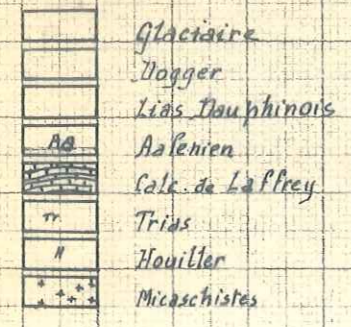 Glaciaire
Dogger
Lias Dauphinois
Aa Aalenien
Calc. de Laffrey
Tr Trias
H Houiller
Micaschistes